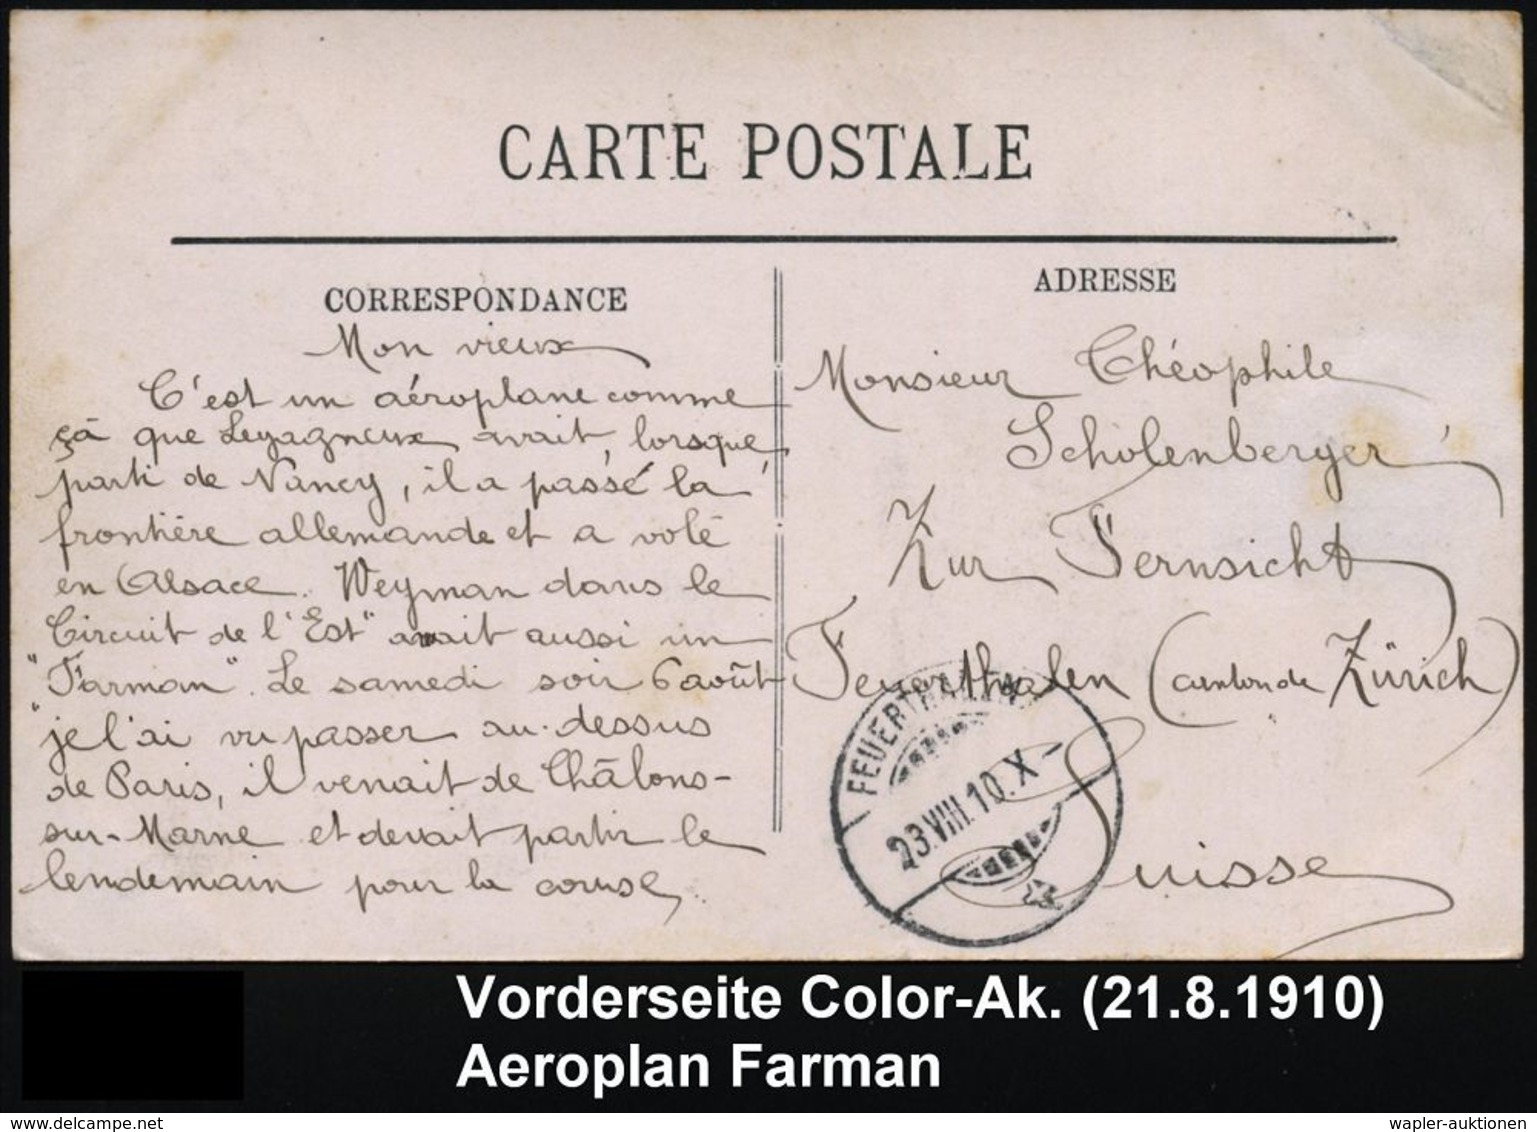 CARTE POSTALE
CORRESPONDANCE
Mon vieux
C'est un aéroplane comme
çà que Legagneux avait, lorsque
parti de Nancy, il a passé la
frontière allemande et a volé
en Alsace. Weyman dans le
"Circuit de l'Est" avait aussi un
"Farman". Le samedi soir 6 août
je l'ai vu passer au-dessus
de Paris, il venait de Châlons-
sur-Marne et devait partir le
lendemain pour la course
ADRESSE
Monsieur Théophile
Scholenberger
Zur Fernsicht
Feuerthalen (canton de Zürich)
Suisse
FEUERTHALEN
23.VIII.10.X-
Vorderseite Color-Ak. (21.8.1910)
Aeroplan Farman
www.delcampe.net
wapler-auktionen